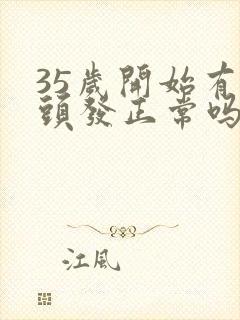 35歲開始有
頭發正常嗎
江風